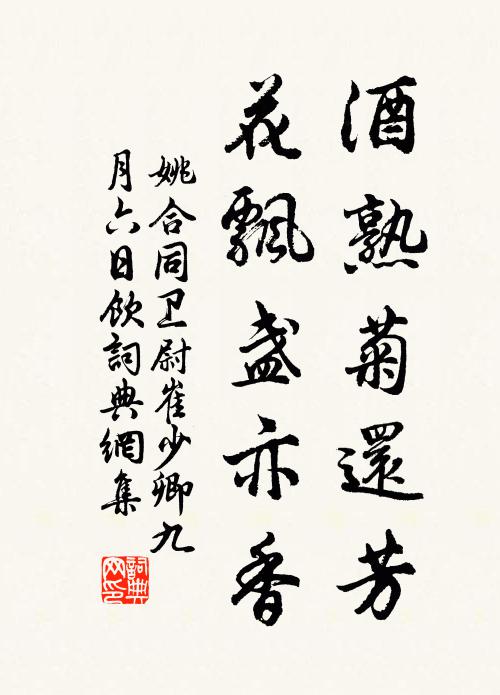 酒熟菊還芳
花飄盞亦香
姚合同卫尉崔少卿九
月六日飲詞典網集
詞典
网印